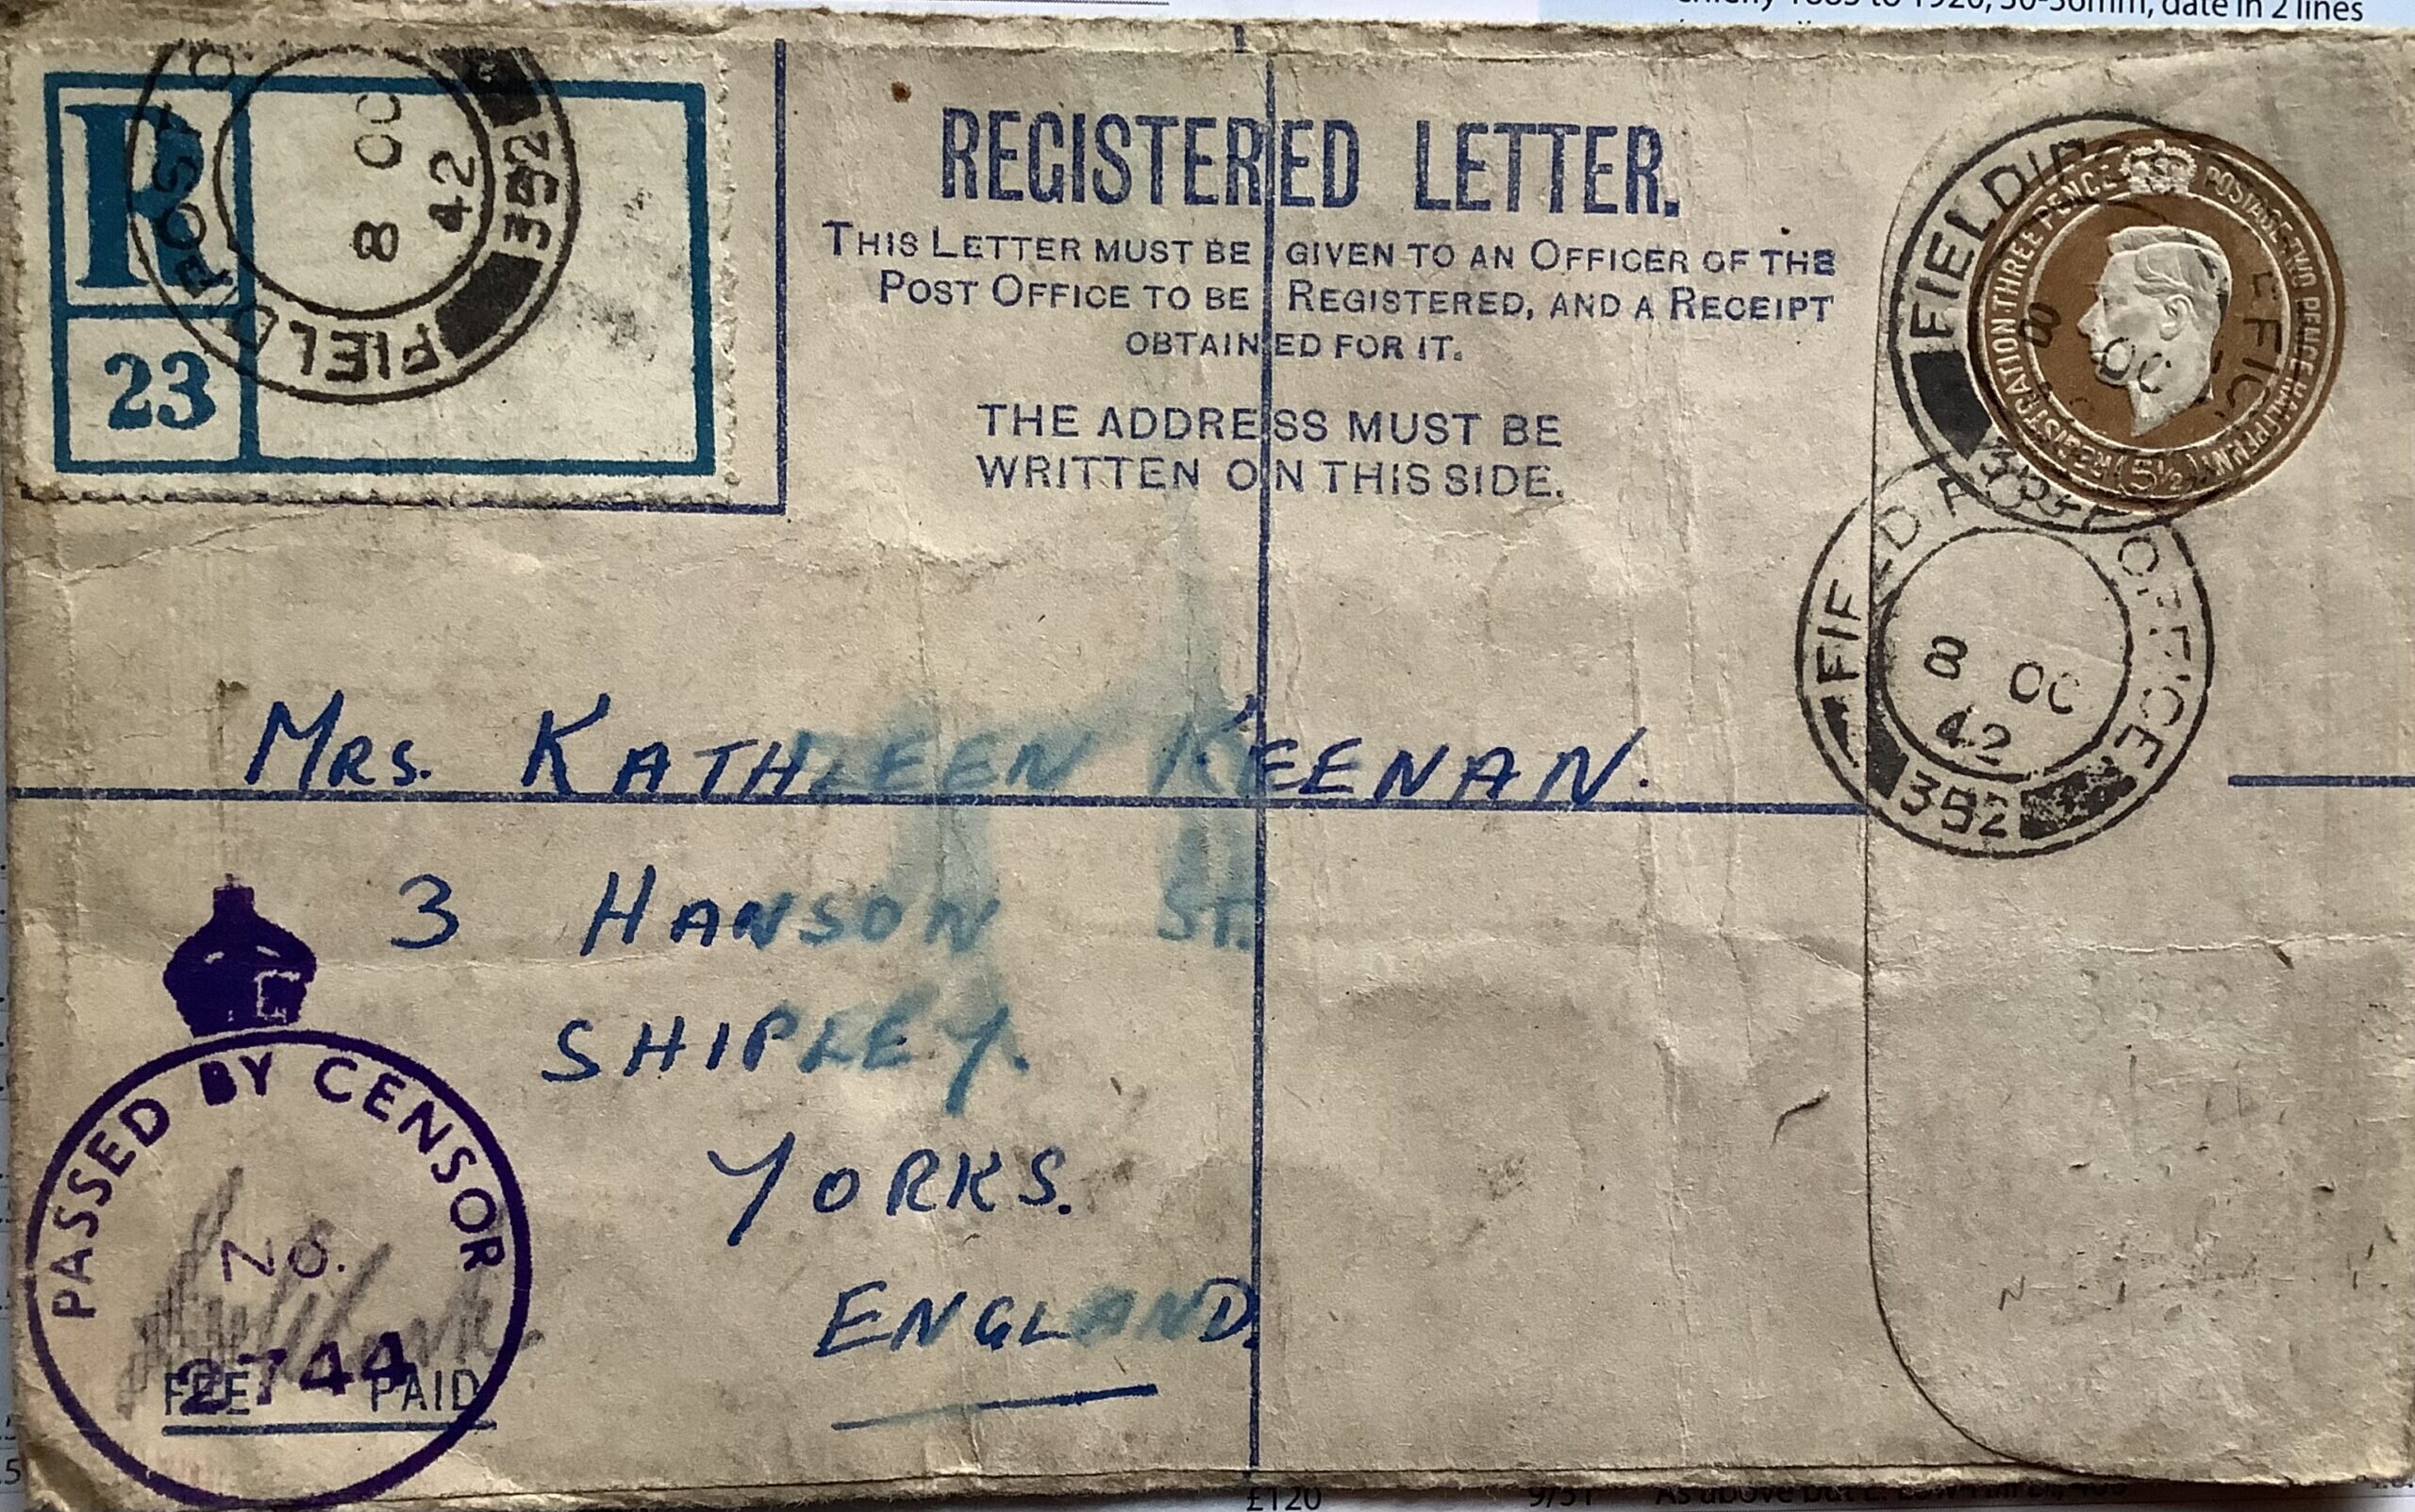 date in 2 lines
R
23
FIELD POST O
8 OC
42
392
REGISTERED LETTER.
THIS LETTER MUST BE GIVEN TO AN OFFICER OF THE
POST OFFICE TO BE REGISTERED, AND A RECEIPT
OBTAINED FOR IT.
THE ADDRESS MUST BE
WRITTEN ON THIS SIDE.
REGISTRATION THREE PENCE POSTAGE TWO PENCE HALFPENNY
(5½)
FIELD
8 OC
FIELD POST OFFICE
8 OC
42
392
MRS. KATHLEEN KEENAN.
3 HANSON ST.
SHIPLEY.
YORKS.
ENGLAND.
PASSED BY CENSOR
No.
2744
FEE PAID
£120